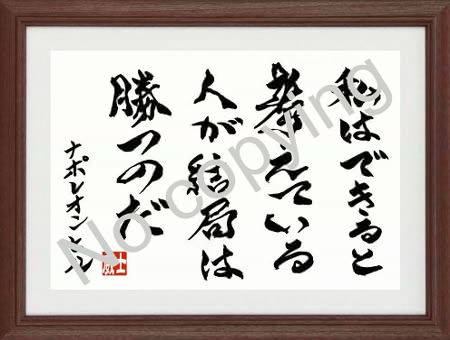 私はできると
考えている
人が結局は
勝つのだ
ナポレオンヒル
No copying